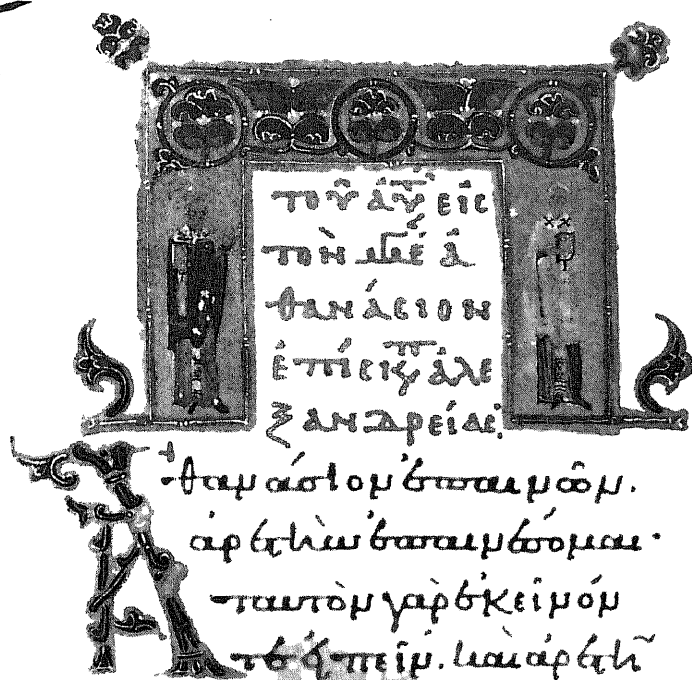 τοῦ ἀυτ εἰς
τὸν μέγ ἀ
θανάσιον
ἐπίσκοπ ἀλε
ξανδρείας:
Ἀθανάσιον ἐπαινῶν.
ἀρετὴν ἐπαινέσομαι·
ταυτὸν γὰρ ἐκεῖνόν
τε ἐιπεῖν. καὶ ἀρετὴν